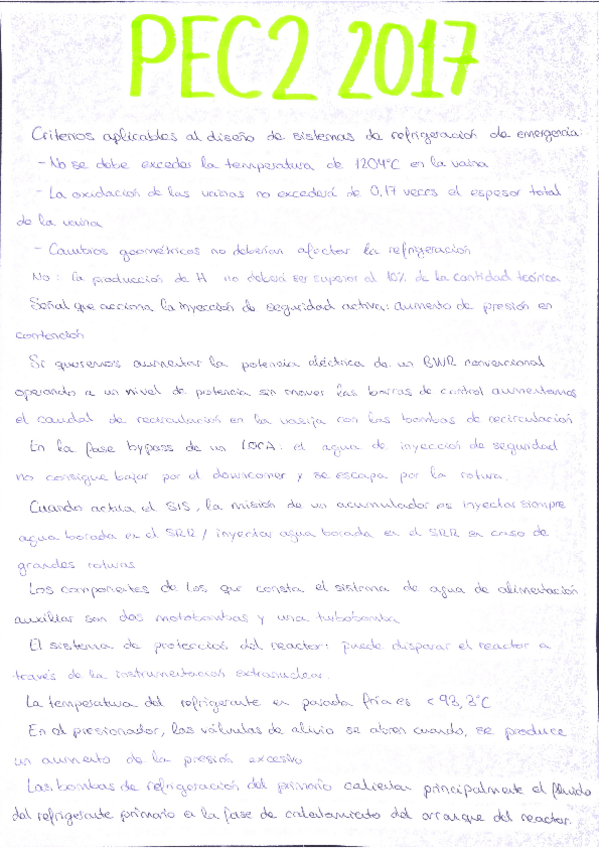 PEC2 2017
Criterios aplicables al diseño de sistemas de refrigeración de emergencia:
- No se debe exceder la temperatura de 1204°C en la vaina
- La oxidación de las vainas no excederá de 0,17 veces el espesor total
de la vaina
- Cambios geométricos no deberían afectar la refrigeración
No: la producción de H no deberá ser superior al 10% de la cantidad teórica
Señal que acciona la inyección de seguridad activa: aumento de presión en
contención
Si queremos aumentar la potencia eléctrica de un BWR convencional
operando a un nivel de potencia sin mover las barras de control aumentamos
el caudal de recirculación en la vasija con las bombas de recirculación
En la fase bypass de un LOCA: el agua de inyección de seguridad
no consigue bajar por el downcomer y se escapa por la rotura.
Cuando actúa el SIS, la misión de un acumulador es inyectar siempre
agua borada en el SRR / inyectar agua borada en el SRR en caso de
grandes roturas
Los componentes de los que consta el sistema de agua de alimentación
auxiliar son dos motobombas y una turbobomba
El sistema de protección del reactor: puede disparar el reactor a
través de la instrumentación extranuclear.
La temperatura del refrigerante en parada fría es <93,3°C
En el presionador, las válvulas de alivio se abren cuando, se produce
un aumento de la presión excesivo
Las bombas de refrigeración del primario calientan principalmente el fluido
del refrigerante primario en la fase de calentamiento del arranque del reactor.